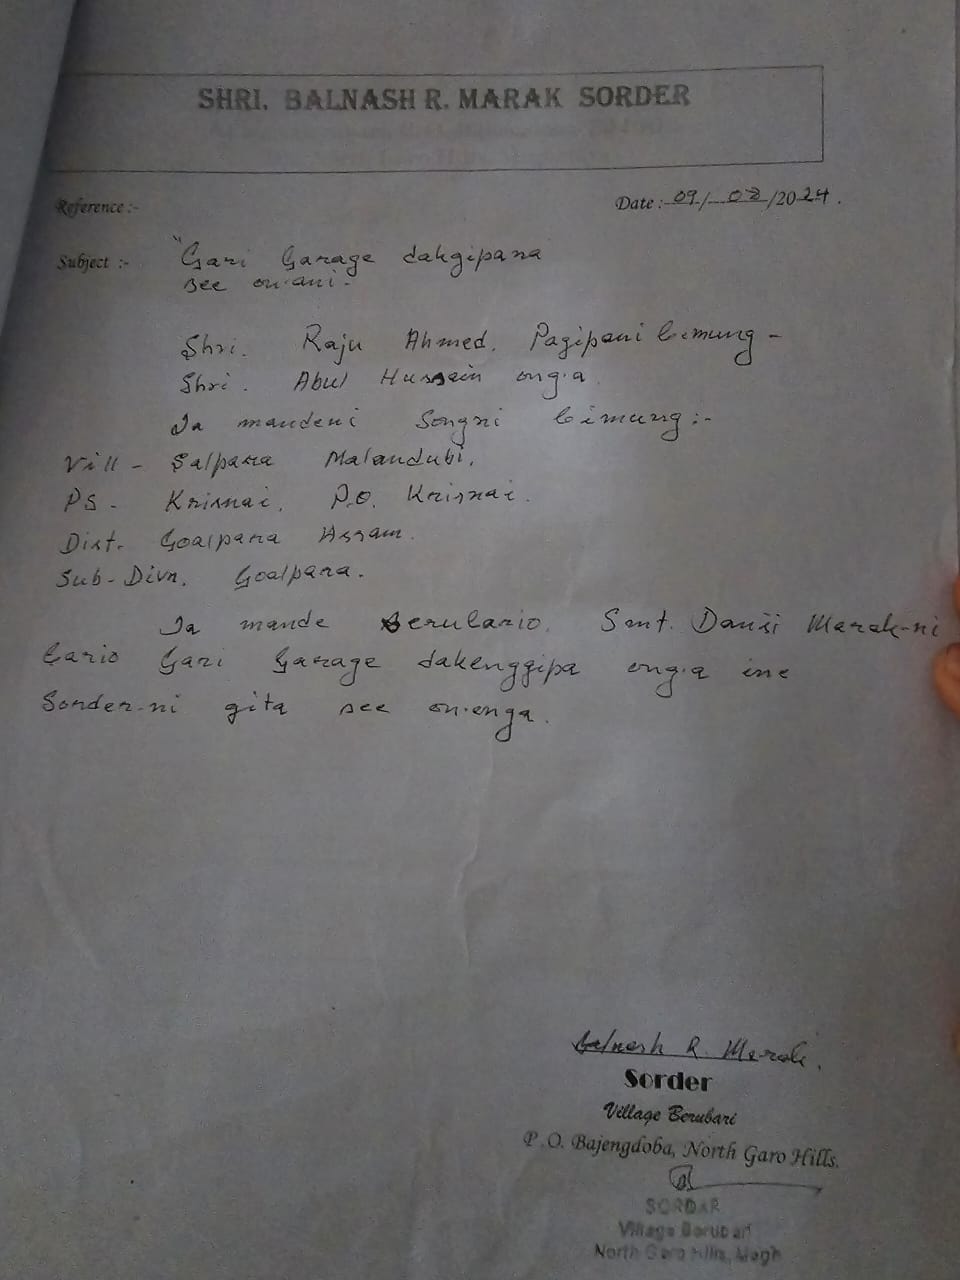 SHRI. BALNASH R. MARAK SORDER
Reference :-
Date :- 09/ 08 /2024.
Subject :- "Gari Garage dakgipana
see on·ani.
Shri. Raju Ahmed. Pagipani bimung -
Shri. Abul Hussain ong·a.
Ia mandeni Songni bimung :-
Vill - Salpara Malandubi,
PS - Krisnai, P.O. Krisnai.
Dist. Goalpara Assam.
Sub-Divn. Goalpara.
Ia mande Berubario. Smt. Marak-ni
bario Gari Garage dakenggipa ong·a ine
Sorder-ni gita see on·enga.
Balnash R. Marak.
Sorder
Village Berubari
P.O. Bajengdoba, North Garo Hills.
SORDAR
Village Berubari
North Garo Hills, Megh